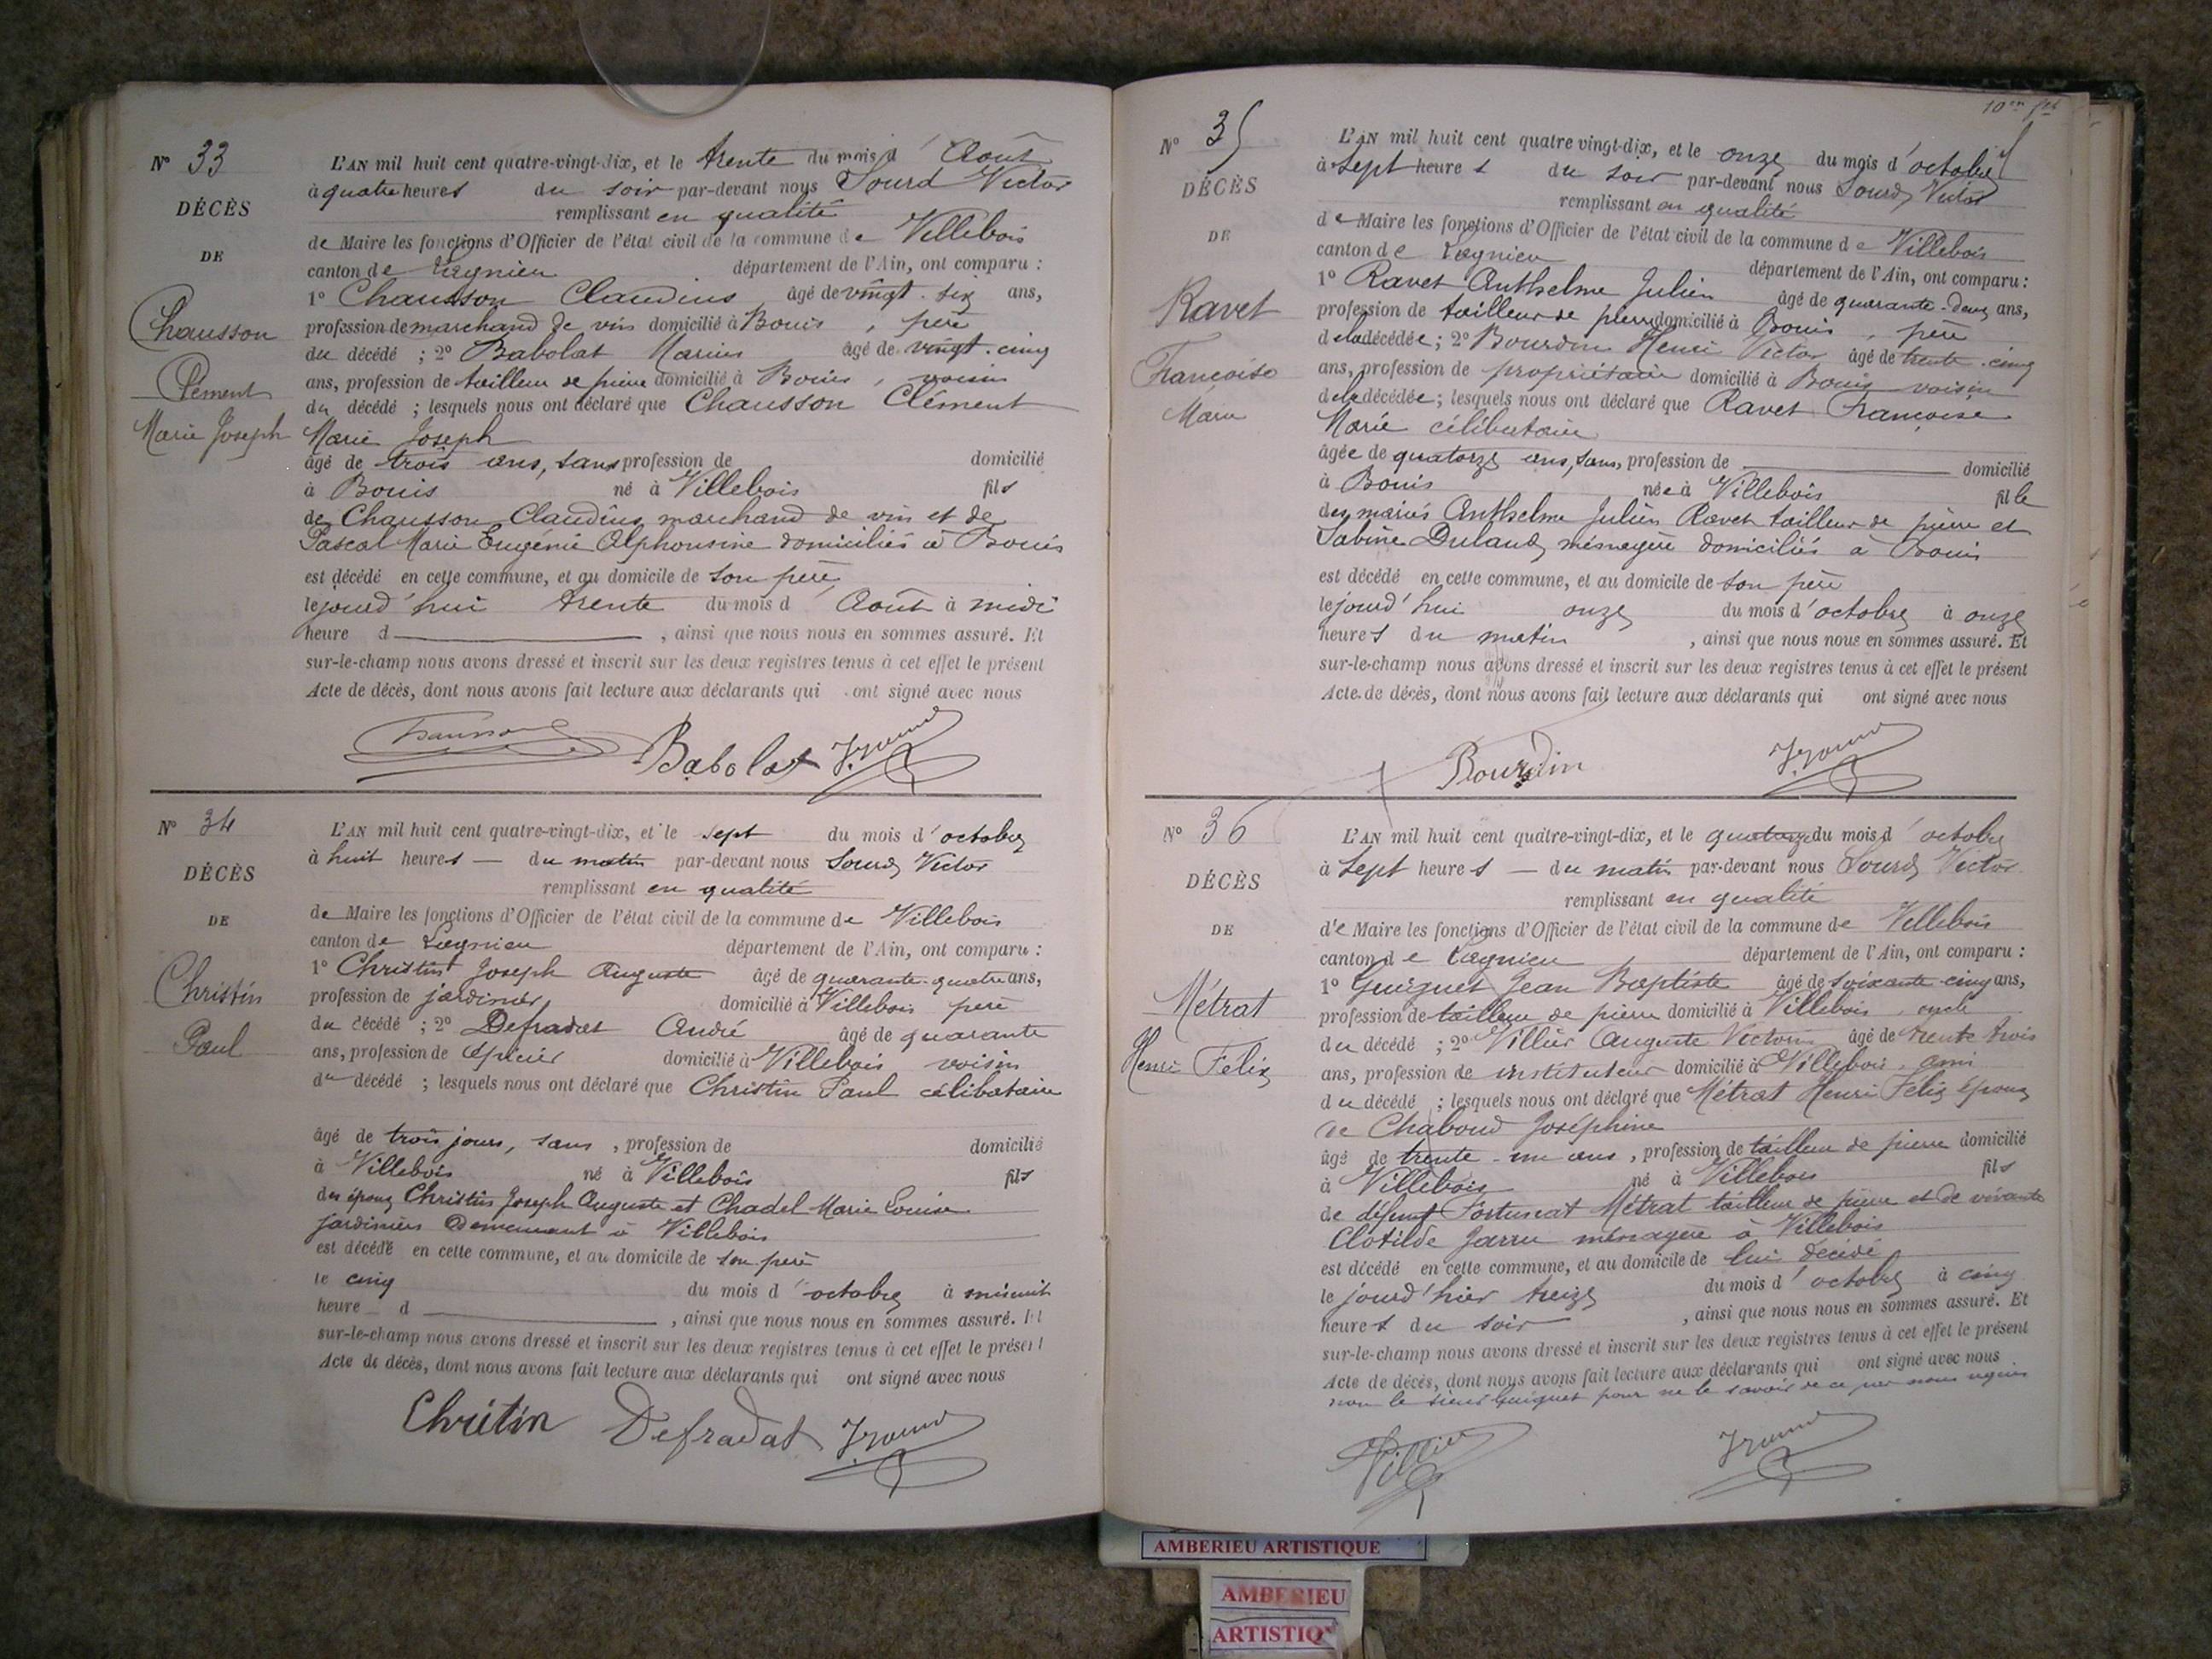 Nº 33
DÉCÈS
DE
Chausson
Clément
Marie Joseph
L'AN mil huit cent quatre-vingt-dix, et le trente du mois d' Août
à quatre heures du soir par-devant nous Sourd Victor
remplissant en qualité
de Maire les fonctions d'Officier de l'état civil de la commune de Villebois
canton de Lagnieu département de l'Ain, ont comparu :
1º Chausson Claudius âgé de vingt-six ans,
profession de marchand de vin domicilié à Bouis, père
du décédé ; 2º Babolat Marius âgé de vingt-cinq
ans, profession de tailleur de pierre domicilié à Bouis, voisin
du décédé ; lesquels nous ont déclaré que Chausson Clément
Marie Joseph
âgé de trois ans, sans profession de domicilié
à Bouis né à Villebois fils
de Chausson Claudius marchand de vin et de
Pascal Marie Eugénie Alphonsine domiciliés à Bouis
est décédé en cette commune, et au domicile de son père
le jourd'hui trente du mois d' Août à midi
heure d , ainsi que nous nous en sommes assuré. Et
sur-le-champ nous avons dressé et inscrit sur les deux registres tenus à cet effet le présent
Acte de décès, dont nous avons fait lecture aux déclarants qui ont signé avec nous
Babolat
Nº 34
DÉCÈS
DE
Christin
Paul
L'AN mil huit cent quatre-vingt-dix, et le sept du mois d'octobre
à huit heures — du matin par-devant nous Sourd Victor
remplissant en qualité
de Maire les fonctions d'Officier de l'état civil de la commune de Villebois
canton de Lagnieu département de l'Ain, ont comparu :
1º Christin Joseph Auguste âgé de quarante-quatre ans,
profession de jardinier domicilié à Villebois père
du décédé ; 2º Defradat André âgé de quarante
ans, profession de épicier domicilié à Villebois voisin
du décédé ; lesquels nous ont déclaré que Christin Paul célibataire
âgé de trois jours, sans, profession de domicilié
à Villebois né à Villebois fils
des époux Christin Joseph Auguste et Chadel Marie Louise
jardiniers demeurant à Villebois
est décédé en cette commune, et au domicile de son père
le cinq du mois d'octobre à minuit
heure d , ainsi que nous nous en sommes assuré. Et
sur-le-champ nous avons dressé et inscrit sur les deux registres tenus à cet effet le présent
Acte de décès, dont nous avons fait lecture aux déclarants qui ont signé avec nous
Christin Defradat
Nº 35
DÉCÈS
DE
Ravet
Françoise
Marie
L'AN mil huit cent quatre vingt-dix, et le onze du mois d'octobre
à Sept heures du soir par-devant nous Sourd Victor
remplissant en qualité
de Maire les fonctions d'Officier de l'état civil de la commune de Villebois
canton de Lagnieu département de l'Ain, ont comparu :
1º Ravet Anthelme Julien âgé de quarante-deux ans,
profession de tailleur de pierre domicilié à Bouis, père
de la décédée ; 2º Bourdin Henri Victor âgé de trente-cinq
ans, profession de propriétaire domicilié à Bouis voisin
de la décédée ; lesquels nous ont déclaré que Ravet Françoise
Marie célibataire
âgée de quatorze ans, sans, profession de domicilié
à Bouis née à Villebois fille
des mariés Anthelme Julien Ravet tailleur de pierre et
Sabine Dulaud ménagère domiciliés à Bouis
est décédé en cette commune, et au domicile de son père
le jourd'hui onze du mois d'octobre à onze
heures du matin , ainsi que nous nous en sommes assuré. Et
sur-le-champ nous avons dressé et inscrit sur les deux registres tenus à cet effet le présent
Acte de décès, dont nous avons fait lecture aux déclarants qui ont signé avec nous
Bourdin
Nº 36
DÉCÈS
DE
Métrat
Henri Félix
L'AN mil huit cent quatre-vingt-dix, et le quatorze du mois d'octobre
à Sept heures — du matin par-devant nous Sourd Victor
remplissant en qualité
de Maire les fonctions d'Officier de l'état civil de la commune de Villebois
canton de Lagnieu département de l'Ain, ont comparu :
1º Guiguet Jean Baptiste âgé de soixante-cinq ans,
profession de tailleur de pierre domicilié à Villebois, oncle
du décédé ; 2º Villier Auguste Victorin âgé de trente trois
ans, profession de instituteur domicilié à Villebois, ami
du décédé ; lesquels nous ont déclaré que Métrat Henri Félix époux
de Chaboud Joséphine
âgé de trente-un ans, profession de tailleur de pierre domicilié
à Villebois né à Villebois fils
de défunt Fortunat Métrat tailleur de pierre et de vivante
Clotilde Jarru ménagère à Villebois
est décédé en cette commune, et au domicile de lui décédé
le jourd'hier treize du mois d'octobre à cinq
heures du soir , ainsi que nous nous en sommes assuré. Et
sur-le-champ nous avons dressé et inscrit sur les deux registres tenus à cet effet le présent
Acte de décès, dont nous avons fait lecture aux déclarants qui ont signé avec nous
non le sieur Guiguet pour ne le savoir de ce par nous requis
Villier
AMBERIEU ARTISTIQUE
AMBERIEU
ARTISTIQ